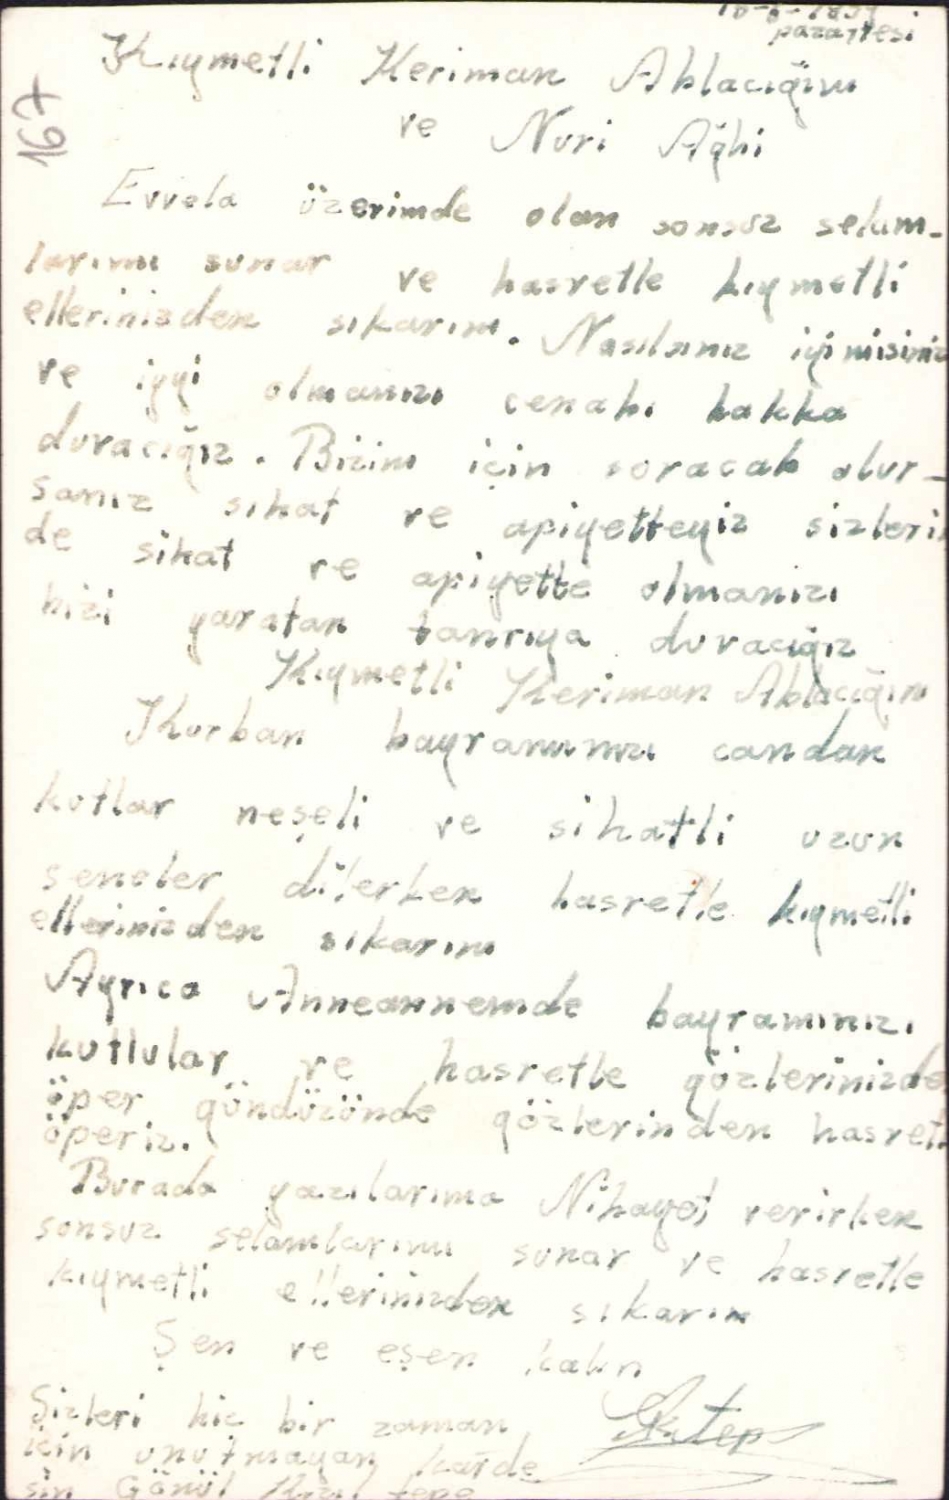 pazartesi
167
Kıymetli Keriman Ablacığım
ve Nuri Ağbi
Evvela üzerimde olan sonsuz selam-
larımı sunar ve hasretle kıymetli
ellerinizden sıkarım. Nasılsınız iyimisiniz
ve iyyi olmanızı cenabı hakka
duvacığız. Bizim için soracak olur-
sanız sıhat ve apiyetteyiz sizlerin
de sihat ve apiyette olmanızı
bizi yaratan tanrıya duvacığız
Kıymetli Keriman Ablacığım
Kurban bayramınızı candan
kutlar neşeli ve sihatli uzun
seneler dilerken hasretle kıymetli
ellerinizden sıkarım
Ayrıca Anneannemde bayramınızı
kutlular ve hasretle gözlerinizde
öper gündüzünde gözlerinden hasret
öperiz.
Burada yazılarıma Nihayet verirken
sonsuz selamlarımı sunar ve hasretle
kıymetli ellerinizden sıkarım
Şen ve eşen kalın
Sizleri hiç bir zaman
için unutmayan karde
şin Gönül Kızıltepe